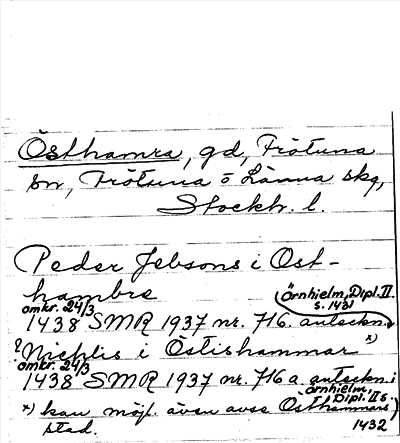 Östhamra, gd, Frötuna
sn, Frötuna o Länna skg,
Stockh. l.
Peder Jebsons i Öst-
hambre
omkr. 24/3
1438 SMR 1937 nr. 716. anteckn.
(Örnhielm, Dipl. II.
s. 1431
? Nichlis i Östishammar x)
omkr. 24/3
1438 SMR 1937 nr. 716 a. anteckn. i
Örnhielm,
Dipl. II s.
1432
x) kan möjl. även avse Östhammars
stad.